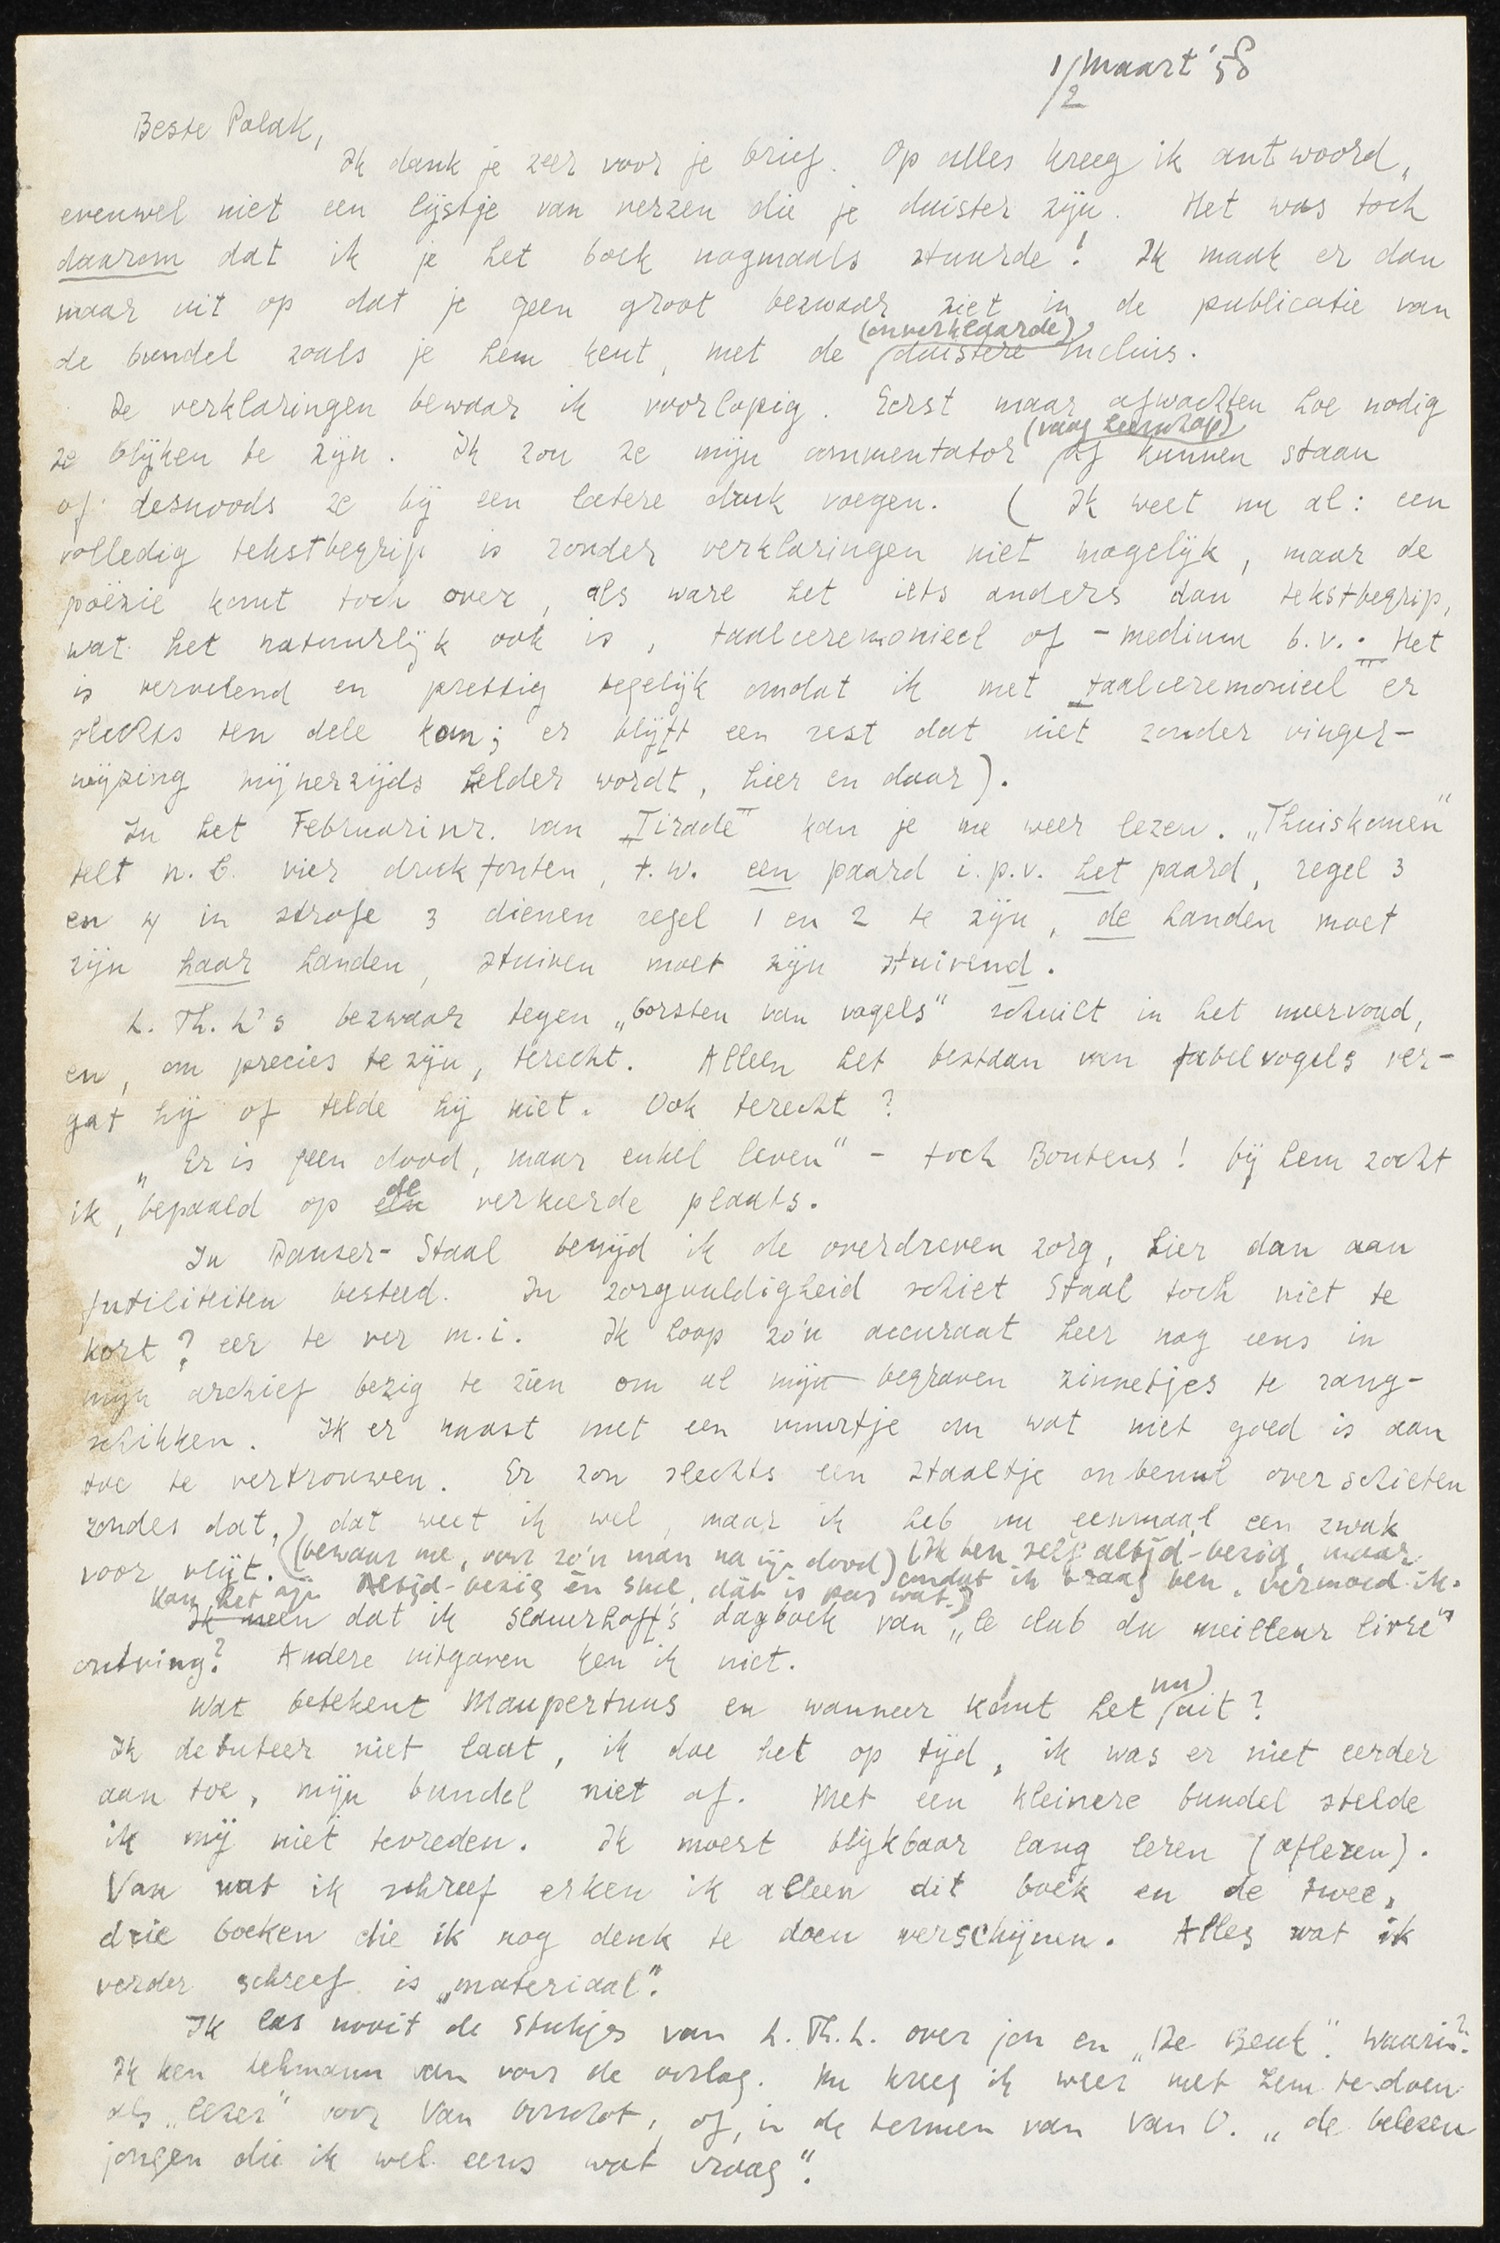 1/2 maart '58
Beste Polak,
Ik dank je zeer voor je brief. Op alles kreeg ik antwoord,
evenwel niet een lijstje van verzen die je duister zijn. Het was toch
daarom dat ik je het boek nogmaals stuurde! Ik maak er dan
maar uit op dat je geen groot bezwaar ziet in de publicatie van
de bundel zoals je hem kent, met de (onverklaarde) duistere incluis.
De verklaringen bewaar ik voorlopig. Eerst maar afwachten hoe nodig
ze blijken te zijn. Ik zou ze mijn commentator (vaag heerschap) af kunnen staan
of desnoods ze bij een latere druk voegen. (Ik weet nu al: een
volledig tekstbegrip is zonder verklaringen niet mogelijk, maar de
poëzie komt toch over, als ware het iets anders dan tekstbegrip,
wat het natuurlijk ook is, taalceremonieel of -medium b.v.. Het
is vervelend en prettig tegelijk omdat ik met "taalceremonieel" er
slechts ten dele kom; er blijft een rest dat niet zonder vinger-
wijzing mijnerzijds helder wordt, hier en daar).
In het Februarinr. van "Tirade" kan je me weer lezen. "Thuiskomen"
telt n.b. vier drukfouten, t.w. een paard i.p.v. het paard, regel 3
en 4 in strofe 3 dienen regel 1 en 2 te zijn, de handen moet
zijn haar handen, stuiven moet zijn stuivend.
L. Th. L's bezwaar tegen "borsten van vogels" schuilt in het meervoud,
en, om precies te zijn, terecht. Alleen het bestaan van fabelvogels ver-
gat hij of telde hij niet. Ook terecht?
"Er is geen dood, maar enkel leven" - toch Boutens! bij hem zocht
ik, bepaald op de verkeerde plaats.
In Danser-Staal benijd ik de overdreven zorg, hier dan aan
futiliteiten besteed. In zorgvuldigheid schiet Staal toch niet te
kort? eer te ver m.i. Ik hoop zo'n accuraat heer nog eens in
mijn archief bezig te zien om al mijn begraven zinnetjes te rang-
schikken. Ik er naast met een vuurtje om wat niet goed is aan
toe te vertrouwen. Er zou slechts een staaltje onbenul overschieten
zonder dat,) dat weet ik wel, maar ik heb nu eenmaal een zwak
voor vlijt. (bewaar me, voor zo'n man na zijn dood) (Ik ben zelf altijd-bezig, maar
omdat ik traag ben, vermoed ik.
Altijd-bezig én snel, dát is pas wat.)
Kan het zijn dat ik Slauerhoff's dagboek van "le club du meilleur livre"
ontving? Andere uitgaven ken ik niet.
Wat betekent Maupertuus en wanneer komt het nu uit?
Ik debuteer niet laat, ik doe het op tijd, ik was er niet eerder
aan toe, mijn bundel niet af. Met een kleinere bundel stelde
ik mij niet tevreden. Ik moest blijkbaar lang leren (afleren).
Van wat ik schreef erken ik alleen dit boek en de twee,
drie boeken die ik nog denk te doen verschijnen. Alles wat ik
verder schreef is "materiaal".
Ik las nooit de stukjes van L. Th. L. over jou en "De Beuk". Waarin?
Ik ken Lehmann van voor de oorlog. Nu kreeg ik weer met hem te doen
als "lezer" voor Van Oorschot, of, in de termen van Van O. "de belezen
jongen die ik wel eens wat vraag".